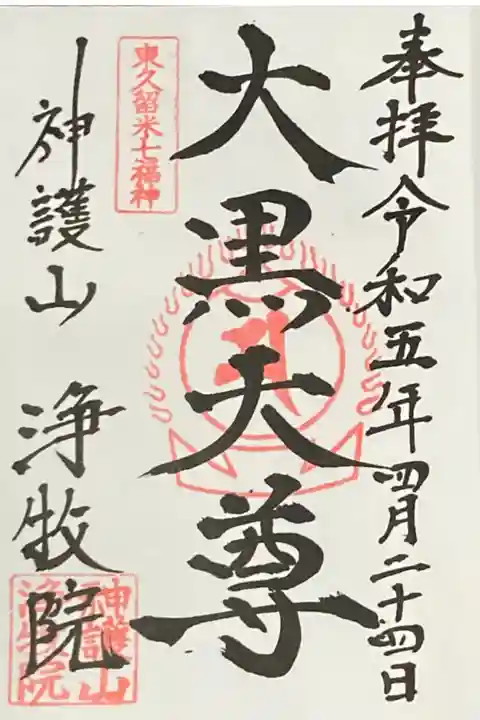 奉拝 令和五年四月二十四日
大黒天尊
東久留米七福神
神護山 浄牧院
神護山
浄牧院